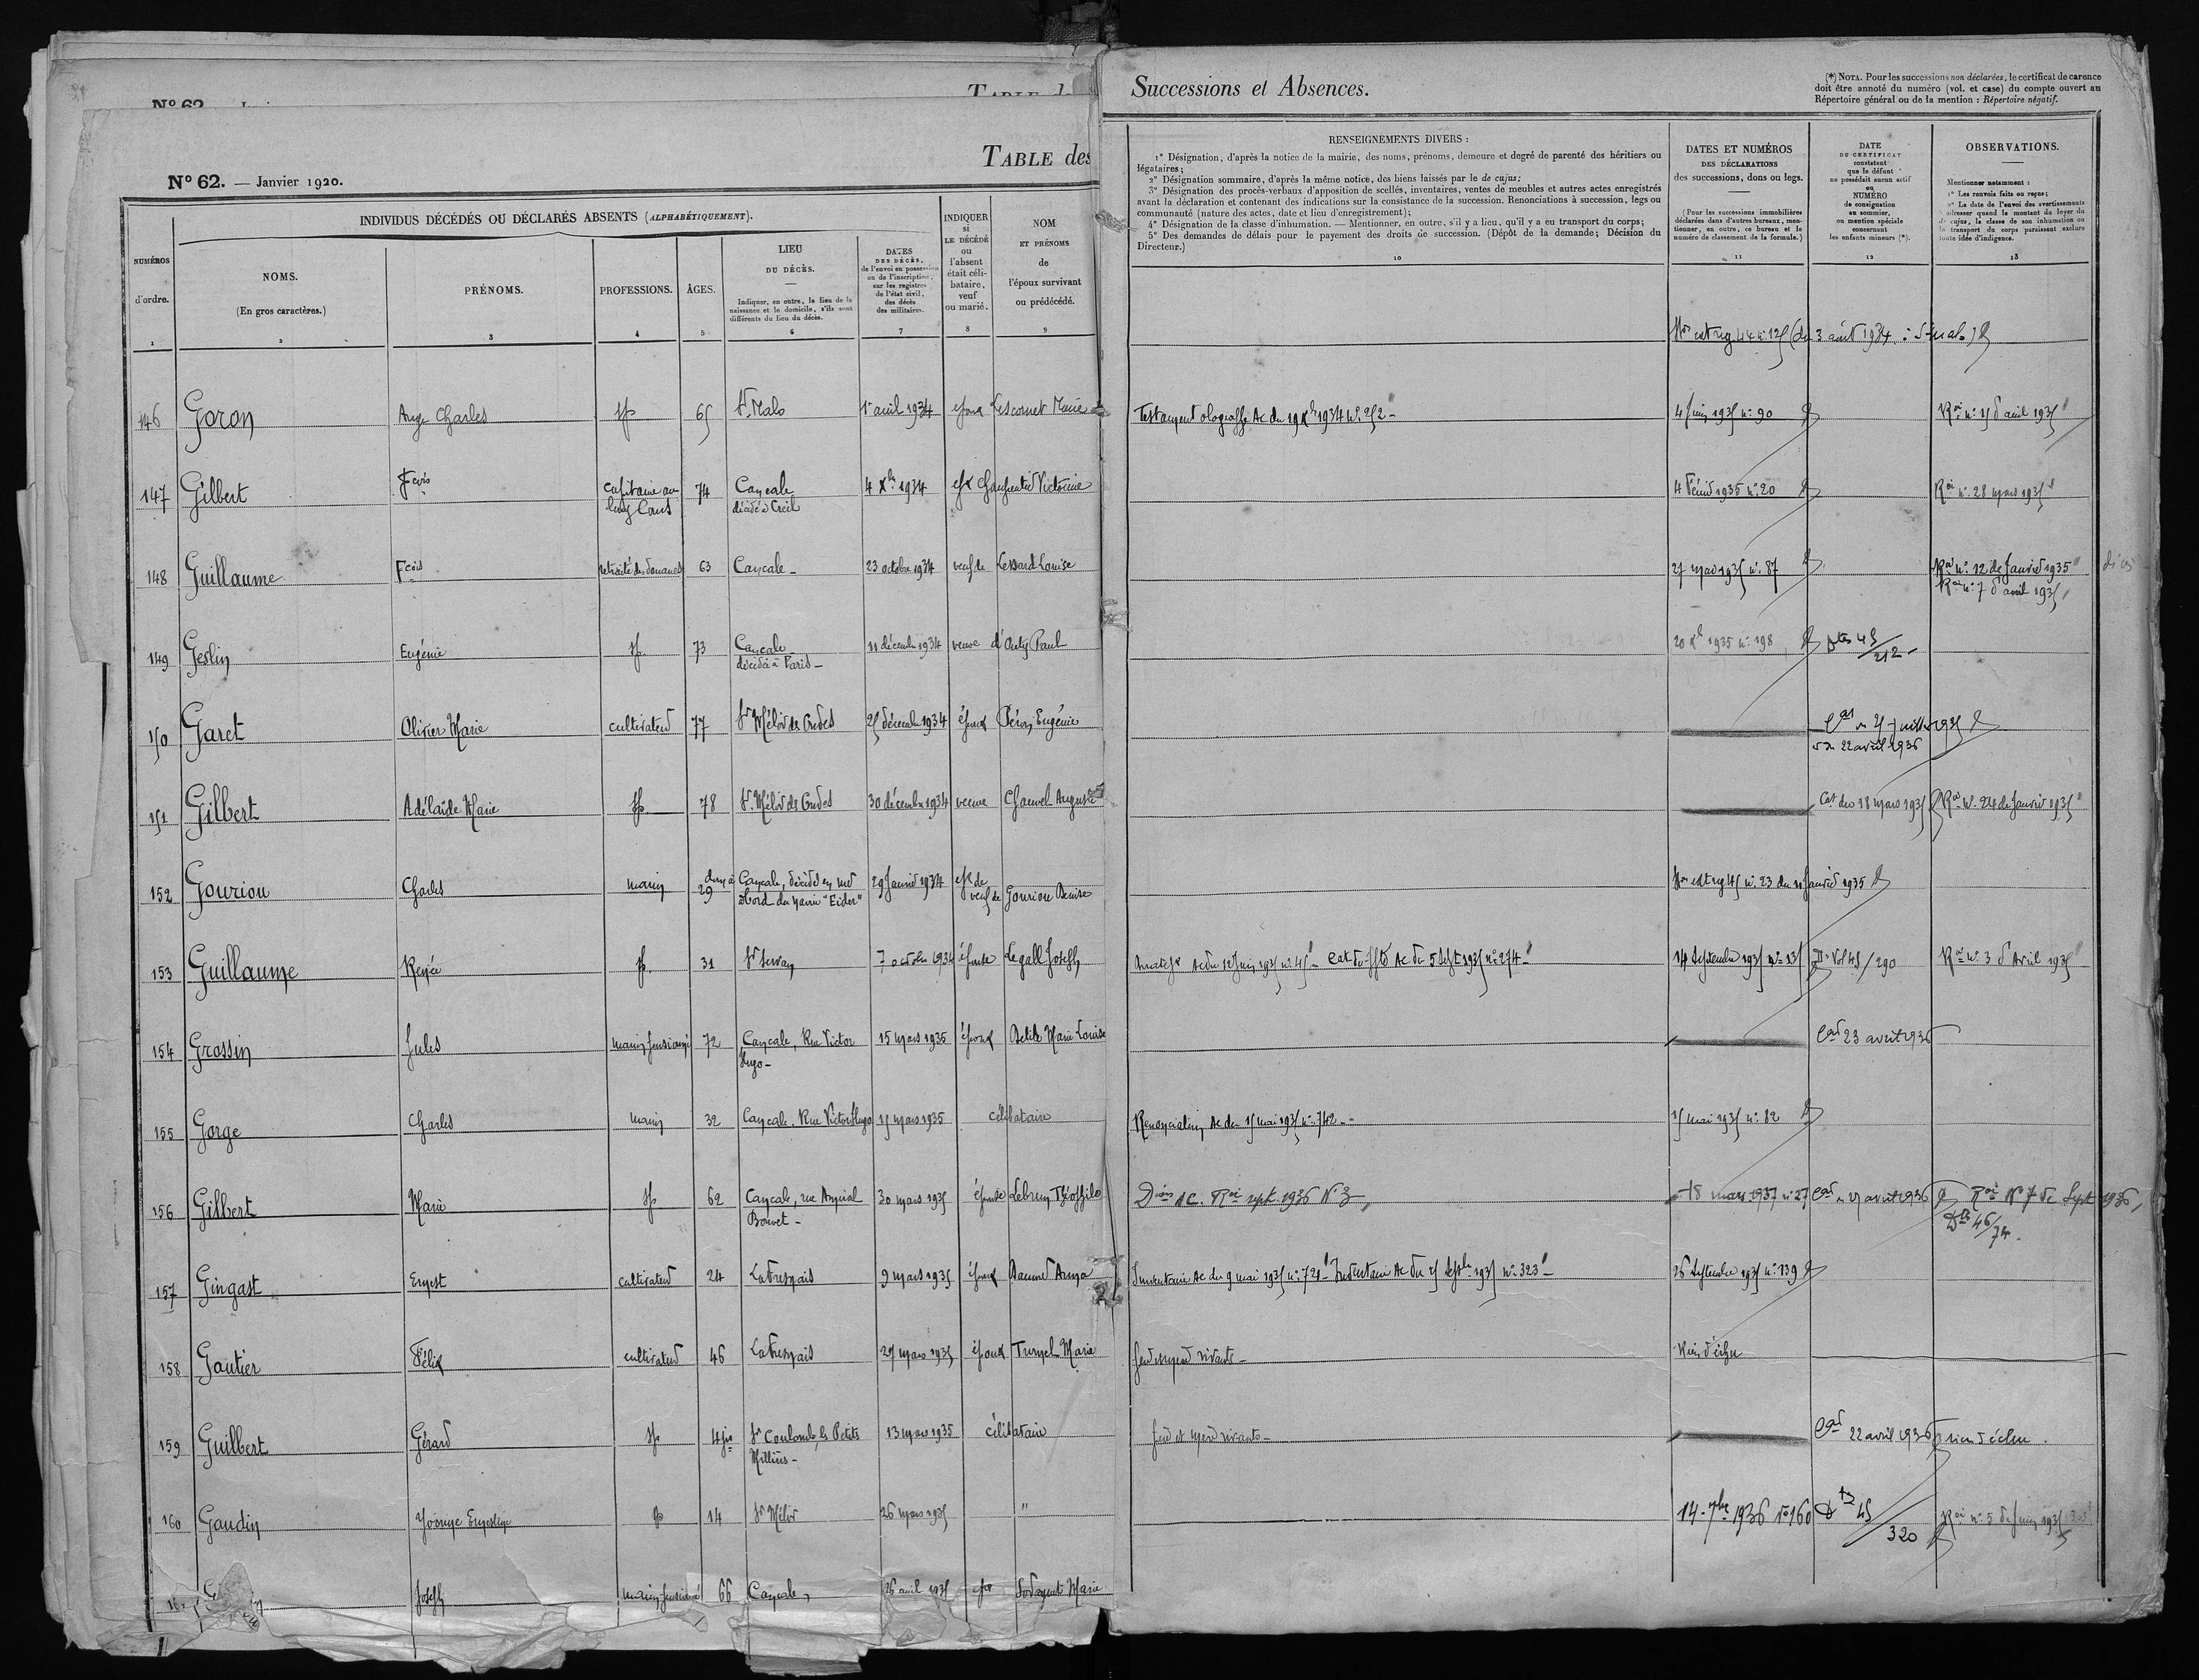 N° 62
TABLE de
N° 62. — Janvier 1920.
TABLE des
Successions et Absences.
(*) NOTA. Pour les successions non déclarées, le certificat de carence
doit être annoté du numéro (vol. et case) du compte ouvert au
Répertoire général ou de la mention : Répertoire négatif.
NUMÉROS
d'ordre.
1
INDIVIDUS DÉCÉDÉS OU DÉCLARÉS ABSENTS (ALPHABÉTIQUEMENT).
NOMS.
(En gros caractères.)
2
PRÉNOMS.
3
PROFESSIONS.
4
ÂGES.
5
LIEU
DU DÉCÈS.
Indiquer, en outre, le lieu de la
naissance et le domicile, s'ils sont
différents du lieu du décès.
6
DATES
DES DÉCÈS,
de l'envoi en possession
ou de l'inscription,
sur les registres
de l'état civil,
des décès
des militaires.
7
INDIQUER
si
LE DÉCÉDÉ
ou
l'absent
était céli-
bataire,
veuf
ou marié.
8
NOM
ET PRÉNOMS
de
l'époux survivant
ou prédécédé.
9
RENSEIGNEMENTS DIVERS :
1° Désignation, d'après la notice de la mairie, des noms, prénoms, demeure et degré de parenté des héritiers ou
légataires;
2° Désignation sommaire, d'après la même notice, des biens laissés par le de cujus;
3° Désignation des procès-verbaux d'apposition de scellés, inventaires, ventes de meubles et autres actes enregistrés
avant la déclaration et contenant des indications sur la consistance de la succession. Renonciations à succession, legs ou
communauté (nature des actes, date et lieu d'enregistrement);
4° Désignation de la classe d'inhumation. — Mentionner, en outre, s'il y a lieu, qu'il y a eu transport du corps;
5° Des demandes de délais pour le payement des droits de succession. (Dépôt de la demande; Décision du
Directeur.)
10
DATES ET NUMÉROS
DES DÉCLARATIONS
des successions, dons ou legs.
(Pour les successions immobilières
déclarées dans d'autres bureaux, men-
tionner, en outre, ce bureau et le
numéro de classement de la formule.)
11
DATE
DU CERTIFICAT
constatant
que le défunt
ne possédait aucun actif
ou
NUMÉRO
de consignation
au sommier,
ou mention spéciale
concernant
les enfants mineurs (*).
12
OBSERVATIONS.
Mentionner notamment :
1° Les renvois faits ou reçus;
2° La date de l'envoi des avertissements
à adresser quand le montant du loyer du
de cujus, la classe de son inhumation ou
le transport du corps paraissent exclure
toute idée d'indigence.
13
3 août 1934 : St Malo)
146 Goron Ange Charles sp 65 St. Malo 1er avril 1934 époux Lescornet Marie
Testament olographe Ac du 19 Xbre 1934 n° 252 - 4 Juin 1935 n° 90 Roi n° 15 d'avril 1935
147 Gilbert Fcois capitaine au 74 Cancale 4 Xbre 1934 epx Charpentier Victorine 4 Février 1935 n° 20 Roi n° 28 mars 1935
long Cours décédé à Creil
148 Guillaume Fcois retraité des douanes 63 Cancale - 23 octobre 1934 veuf de Lessard Louise 27 mars 1935 n° 87 Roi n° 12 de Janvier 1935
Roi n° 7 d'avril 1935
149 Geslin Eugénie sp 73 Cancale 11 décembre 1934 veuve Paul 20 Xbre 1935 n° 198
décédée à Paris - 212
150 Garet Olivier Marie cultivateur 77 St Méloir des Ondes 25 décembre 1934 époux Péron Eugénie Cat du 25 juillet 1935
22 avril 1936
151 Gilbert Adélaïde Marie sp 78 St. Méloir des Ondes 30 décembre 1934 veuve Chauvel Auguste Cat du 18 mars 1935 Roi N° 24 de Janvier 1935
152 Gouriou Charles marin 29 Cancale, décédé en mer 29 Janvier 1934 epx de n° 23 du 11 Janvier 1935
à bord du navire "Eider" veuf de Gouriou Denise
153 Guillaume Renée sp. 31 St Servan 7 octobre 1934 épouse Legall Joseph
Ac du 12 Juin 1935 n° 45 - Cat Ac du 5 Sept 1935 n° 274 - 14 Septembre 1935 n° 135 Vol 45/290 Roi N° 3 d'Avril 1935
154 Grossin Jules marin pensionné 72 Cancale, Rue Victor 15 mars 1935 époux Delile Marie Louise Cat 23 avril 1936
Hugo -
155 Gorge Charles marin 32 Cancale, Rue Victor Hugo 15 mars 1935 célibataire
Renonciation Ac du 15 mai 1935 n° 742 - 15 mai 1935 n° 82
156 Gilbert Marie sp 62 Cancale, rue Amiral 30 mars 1935 épouse Lebrun Théophile
Bouvet -
AC. Roi sept. 1936 N° 3 18 mars 1937 n° 27 Cat 27 avril 1936 Roi N° 7 de Sept 1936,
46/74.
157 Gingast Ernest cultivateur 24 La Fresnais 9 mars 1935 époux Daumer Anna
Inventaire Ac du 9 mai 1935 n° 721 - Inventaire Ac du 25 Septbre 1935 n° 323 - 26 Septembre 1935 n° 139
158 Gautier Félix cultivateur 46 La Fresnais 27 mars 1935 époux Turmel Marie
vivants - Rien d'échu
159 Guilbert Gérard sp 4 jrs St Coulomb, les Petits 13 mars 1935 célibataire
-
père et mère vivants - Cat 22 avril 1936 rien d'échu.
160 Gaudin Yvonne Ernestine sp 14 St Méloir 26 mars 1935 " 14-7bre 1936 N° 160 45/320 Roi n° 5 de Juin 1935
Joseph marin pensionné 66 Cancale, 26 avril 1935 epx Marie